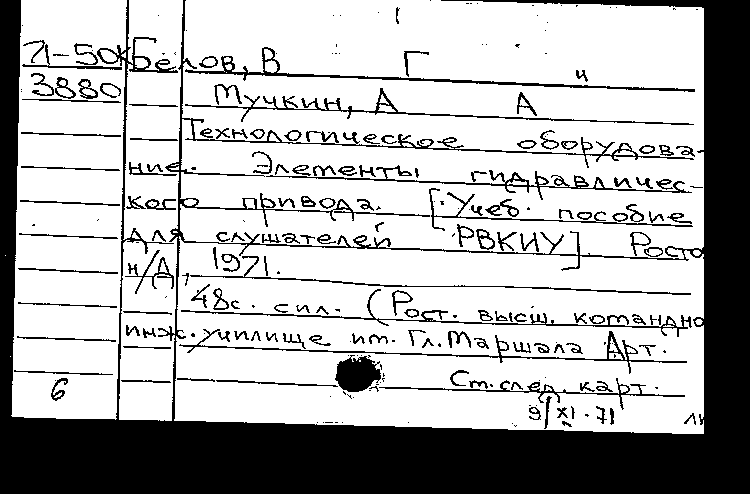 71-50к Белов, В Г и
3880 Мучкин, А А
Технологическое оборудова-
ние. Элементы гидравличес-
кого привода. [Учеб. пособие
для слушателей РВКИУ]. Росто
н/Д, 1971.
48с. с ил. (Рост. высш. командно
инж. училище им. Гл. Маршала Арт.
6 Ст. след. карт.
9/XI-71